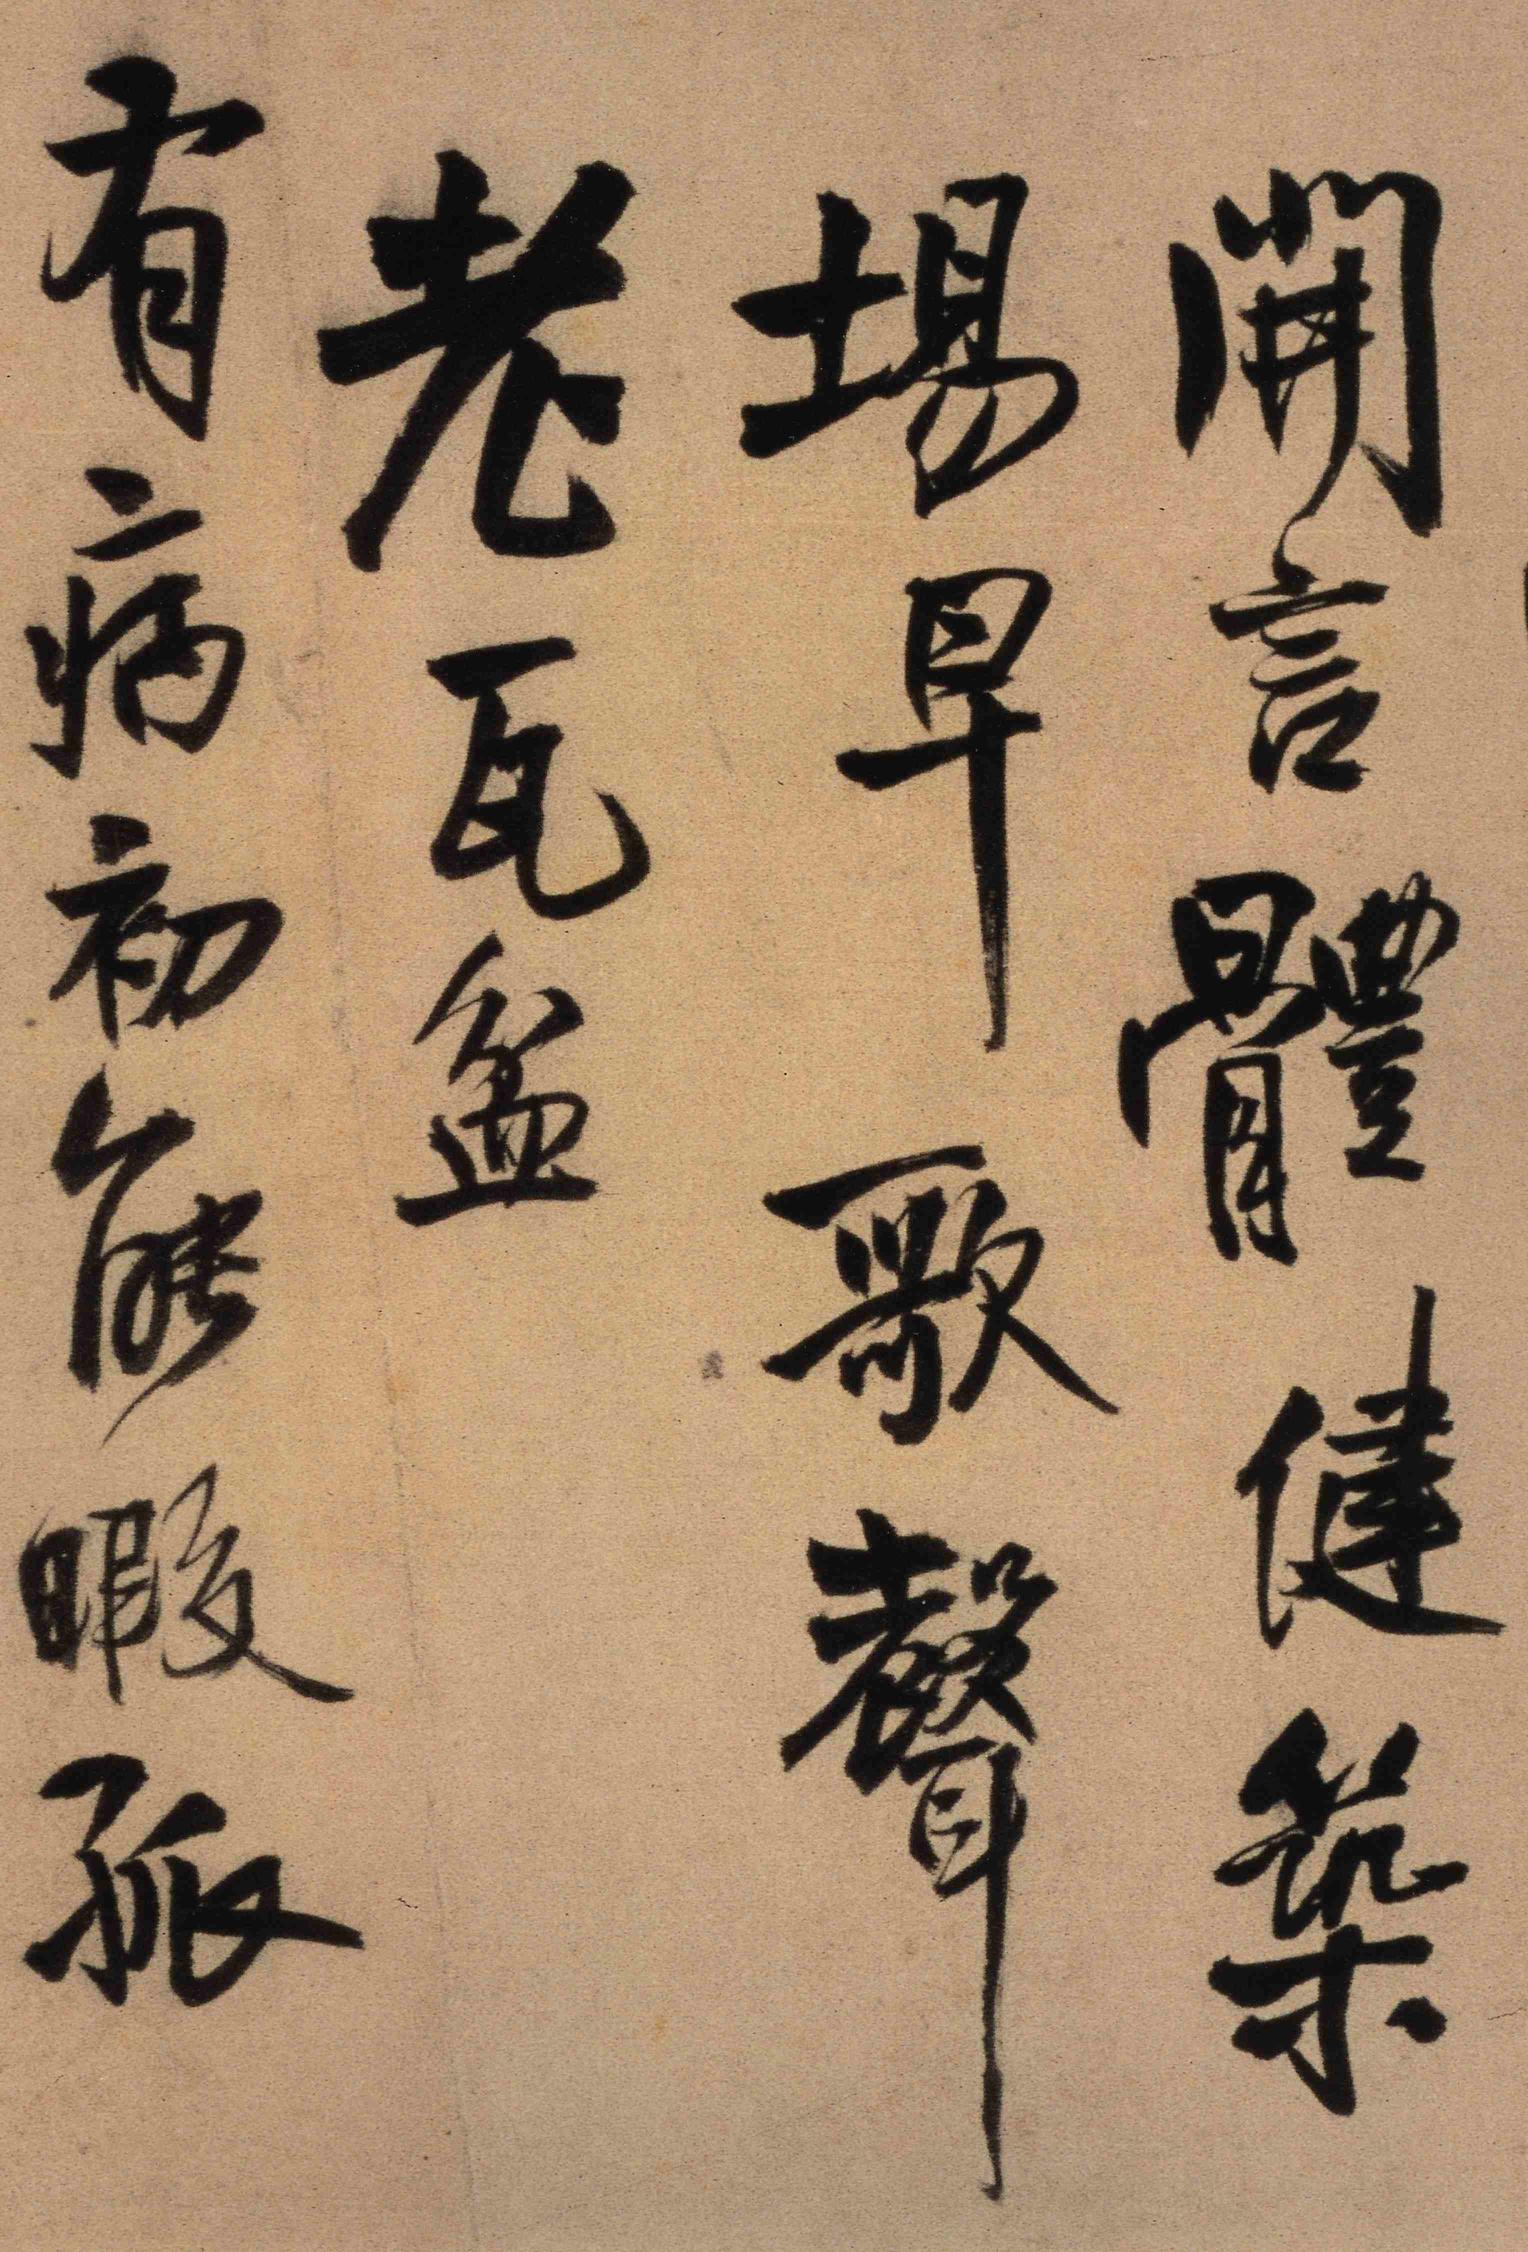 開言體健築
場早歌聲
老瓦盆
有病初能暇孤